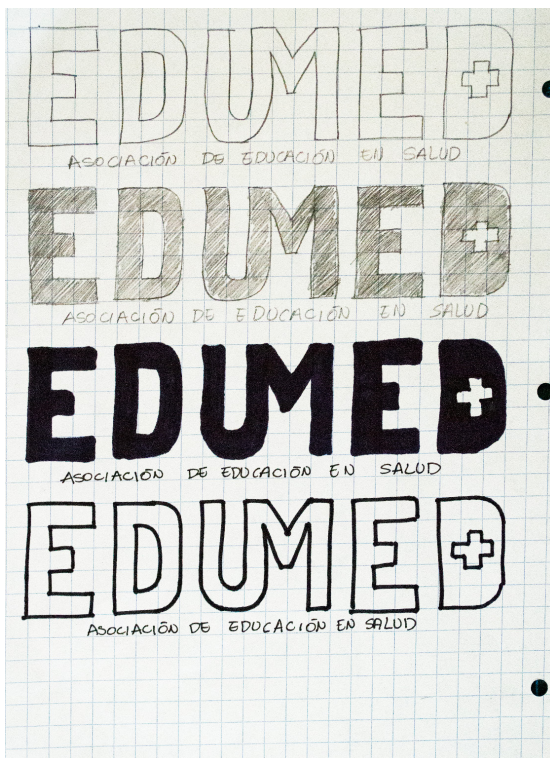 EDUMED
ASOCIACIÓN DE EDUCACIÓN EN SALUD
EDUMED
ASOCIACIÓN DE EDUCACIÓN EN SALUD
EDUMED
ASOCIACIÓN DE EDUCACIÓN EN SALUD
EDUMED
ASOCIACIÓN DE EDUCACIÓN EN SALUD